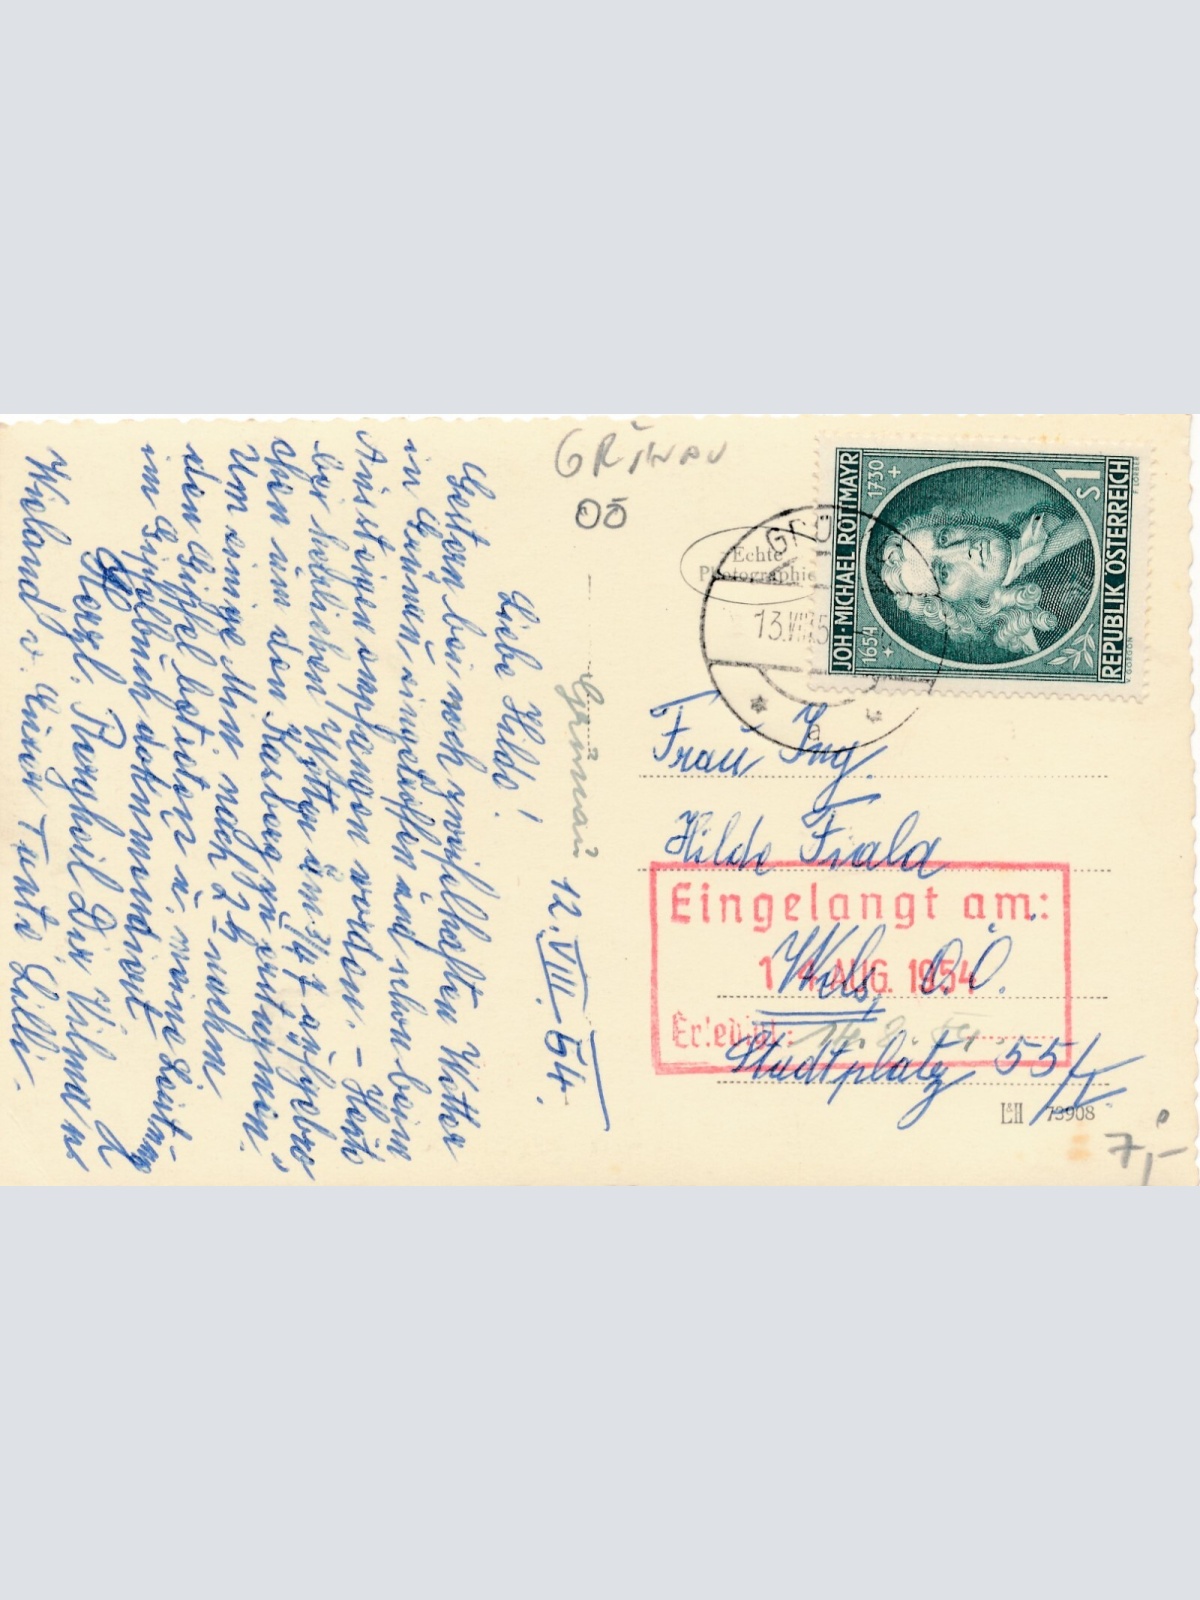 GRÜNAU
OÖ
Grünau 12.VIII.54.
Liebe Hilde!
Gestern bei noch zweifelhaften Wetter
in Grünau eingetroffen und schon beim
Aussteigen empfangen worden. – Heute
bei herrlichen Wetter um 3/4 7 aufgebro-
chen um den Kasberg zu
Um einige Min nach 2 h nachm
den Gipfel betreten u. meine Leistung
im Gipfelbuch dokumentiert
Herzl. Bergheil Dir, Vilma u
Wieland v. Tante Lilli.
Echte
Photographie
GRÜ
13.VIII.5
a
JOH·MICHAEL ROTTMAYR
1654
1730
S1
REPUBLIK ÖSTERREICH
Frau Ing.
Hilde Fiala
Eingelangt am:
Wels, O.Ö.
14. AUG. 1954
Erledigt:
Stadtplatz 55/I
L&H 73908
7,-